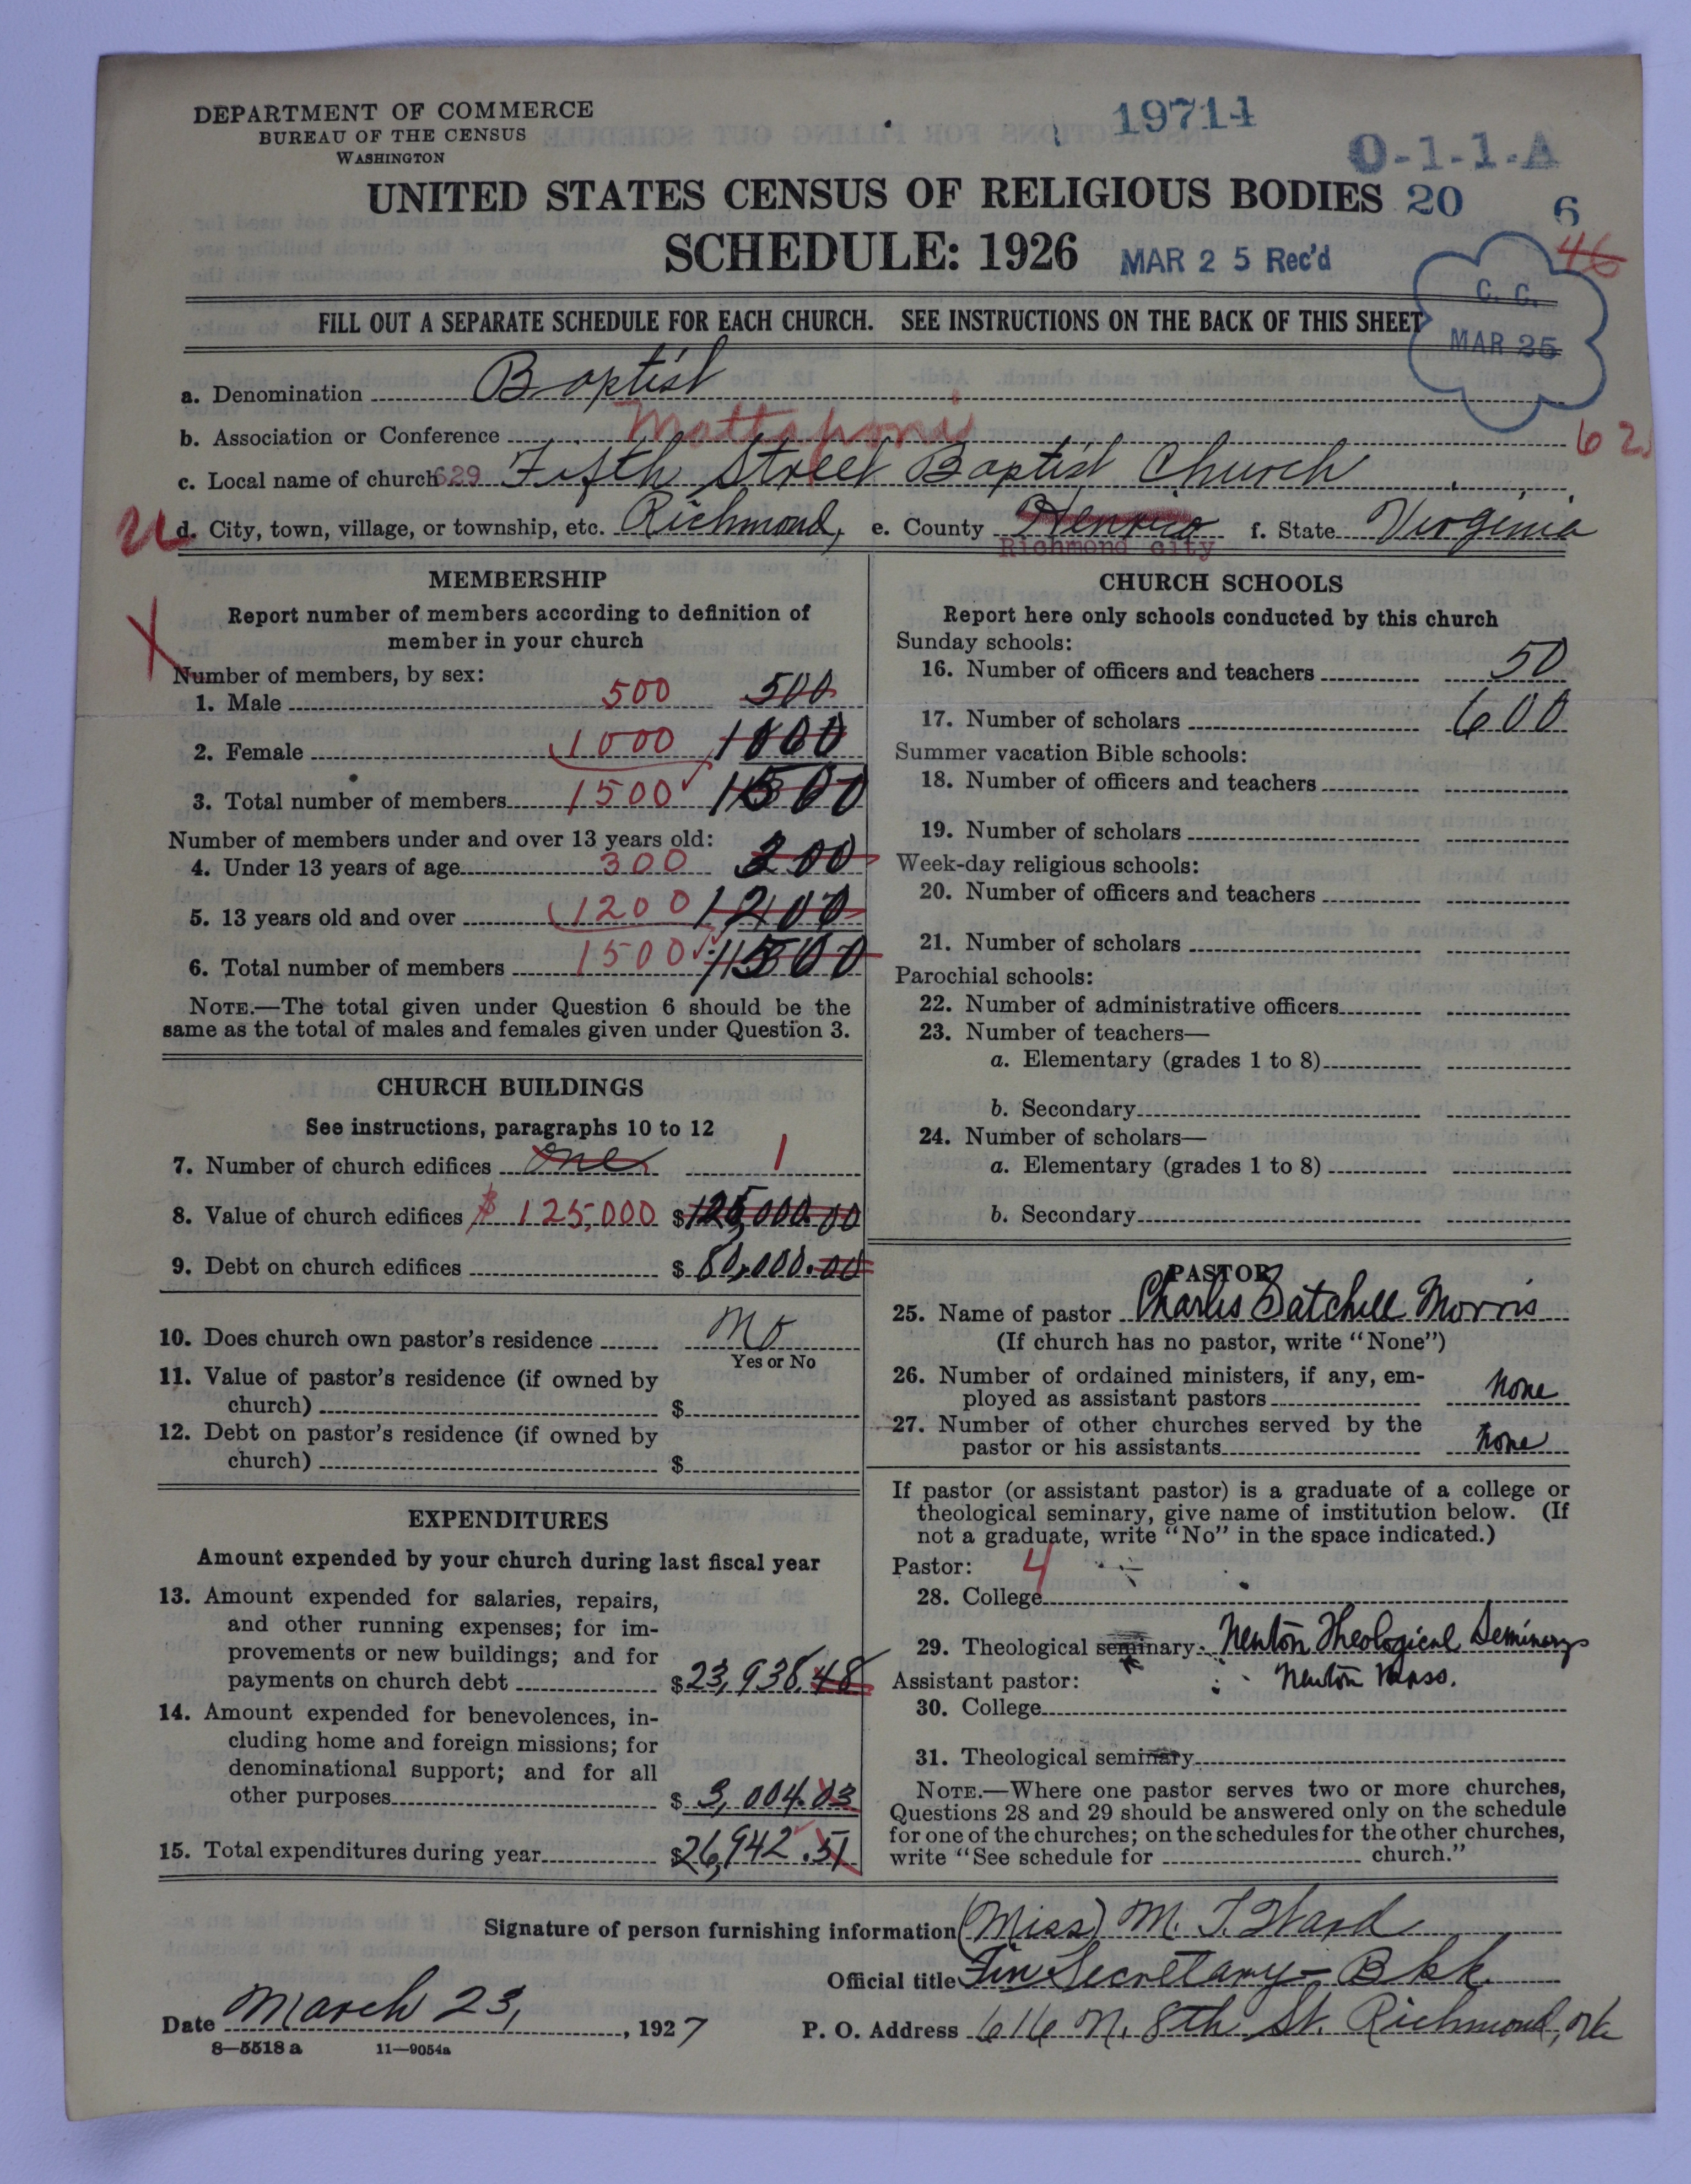 DEPARTMENT OF COMMERCE
BUREAU OF THE CENSUS
WASHINGTON
19714
O-1-1-A
UNITED STATES CENSUS OF RELIGIOUS BODIES 20 6
46
SCHEDULE: 1926 MAR 25 Rec'd
C. C.
MAR 25
FILL OUT A SEPARATE SCHEDULE FOR EACH CHURCH. SEE INSTRUCTIONS ON THE BACK OF THIS SHEET
a. Denomination Baptist
b. Association or Conference Mattaponi 62
c. Local name of church 629 Fifth Street Baptist Church
d. City, town, village, or township, etc. Richmond, e. County Henrico f. State Virginia
Richmond city
MEMBERSHIP
Report number of members according to definition of
member in your church
X
Number of members, by sex:
1. Male 500 500
2. Female 1000 1000
3. Total number of members 1500 1500
Number of members under and over 13 years old:
4. Under 13 years of age 300 300
5. 13 years old and over 1200 1200
6. Total number of members 1500 1500
NOTE.—The total given under Question 6 should be the
same as the total of males and females given under Question 3.
CHURCH BUILDINGS
See instructions, paragraphs 10 to 12
7. Number of church edifices one 1
8. Value of church edifices $ 125,000 $125,000.00
9. Debt on church edifices $ 80,000.00
10. Does church own pastor's residence No
Yes or No
11. Value of pastor's residence (if owned by
church) $
12. Debt on pastor's residence (if owned by
church) $
EXPENDITURES
Amount expended by your church during last fiscal year
13. Amount expended for salaries, repairs,
and other running expenses; for im-
provements or new buildings; and for
payments on church debt $23,938.48
14. Amount expended for benevolences, in-
cluding home and foreign missions; for
denominational support; and for all
other purposes $ 3,004.03
15. Total expenditures during year $26,942.51
CHURCH SCHOOLS
Report here only schools conducted by this church
Sunday schools:
16. Number of officers and teachers 50
17. Number of scholars 600
Summer vacation Bible schools:
18. Number of officers and teachers
19. Number of scholars
Week-day religious schools:
20. Number of officers and teachers
21. Number of scholars
Parochial schools:
22. Number of administrative officers
23. Number of teachers—
a. Elementary (grades 1 to 8)
b. Secondary
24. Number of scholars—
a. Elementary (grades 1 to 8)
b. Secondary
PASTOR
25. Name of pastor Charles Satchell Morris
(If church has no pastor, write "None")
26. Number of ordained ministers, if any, em-
ployed as assistant pastors None
27. Number of other churches served by the
pastor or his assistants None
If pastor (or assistant pastor) is a graduate of a college or
theological seminary, give name of institution below. (If
not a graduate, write "No" in the space indicated.)
Pastor: 4
28. College
29. Theological seminary Newton Theological Seminary
Newton Mass.
Assistant pastor:
30. College
31. Theological seminary
NOTE.—Where one pastor serves two or more churches,
Questions 28 and 29 should be answered only on the schedule
for one of the churches; on the schedules for the other churches,
write "See schedule for church."
Signature of person furnishing information (Miss) M. T. Ward
Official title Fin Secretary - Bkk.
Date March 23, 1927
P. O. Address 616 N. 8th St. Richmond, Va
8—5518 a 11—9054a